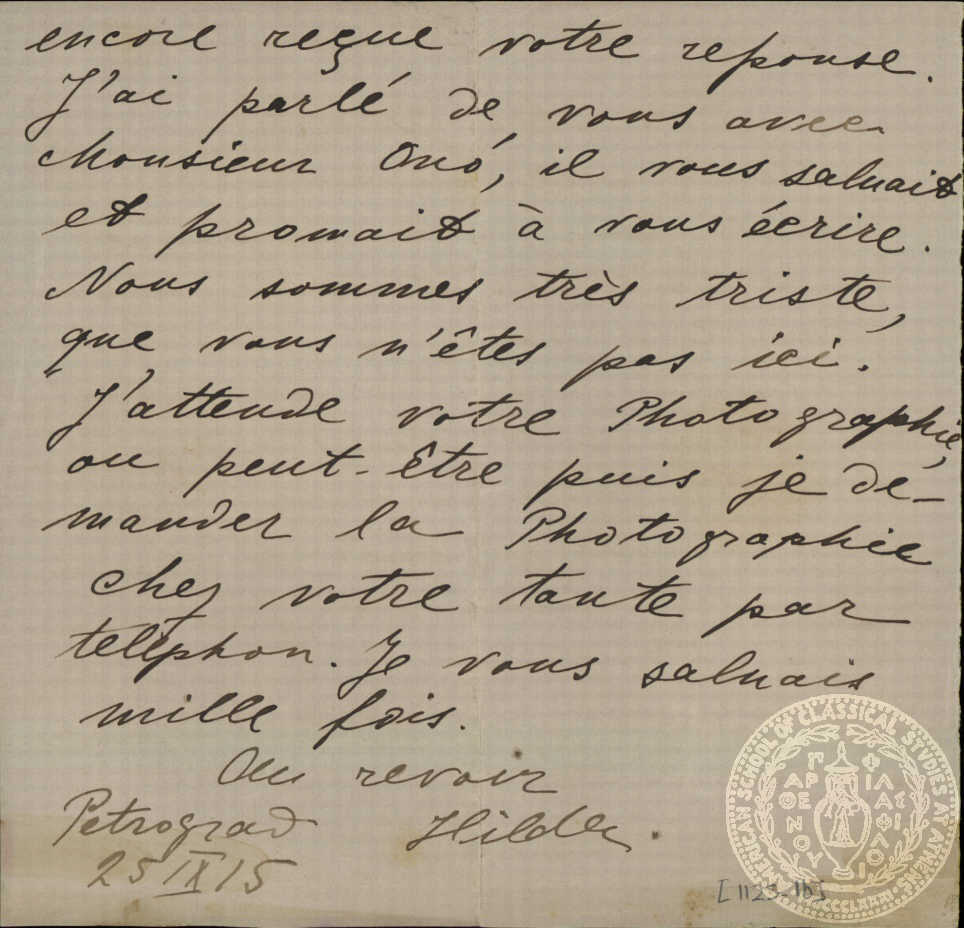 encore reçue votre reponse.
J'ai parlé de vous avec
Monsieur Onó, il vous saluait
et promait à vous écrire.
Nous sommes très triste,
que vous n'êtes pas ici.
J'attende votre Photographie,
ou peut-être puis je dé-
mander la Photographie
chez votre tante par
teléphon. Je vous saluais
mille fois.
Au revoir
Petrograd Hilda.
25 IX 15
[1123-1b]
AMERICAN SCHOOL OF CLASSICAL STUDIES AT ATHENS
MDCCCLXXXI
ΠΑΡΘΕΝΟΥ
ΦΙΛΑΣ ΦΙΛΟΙ